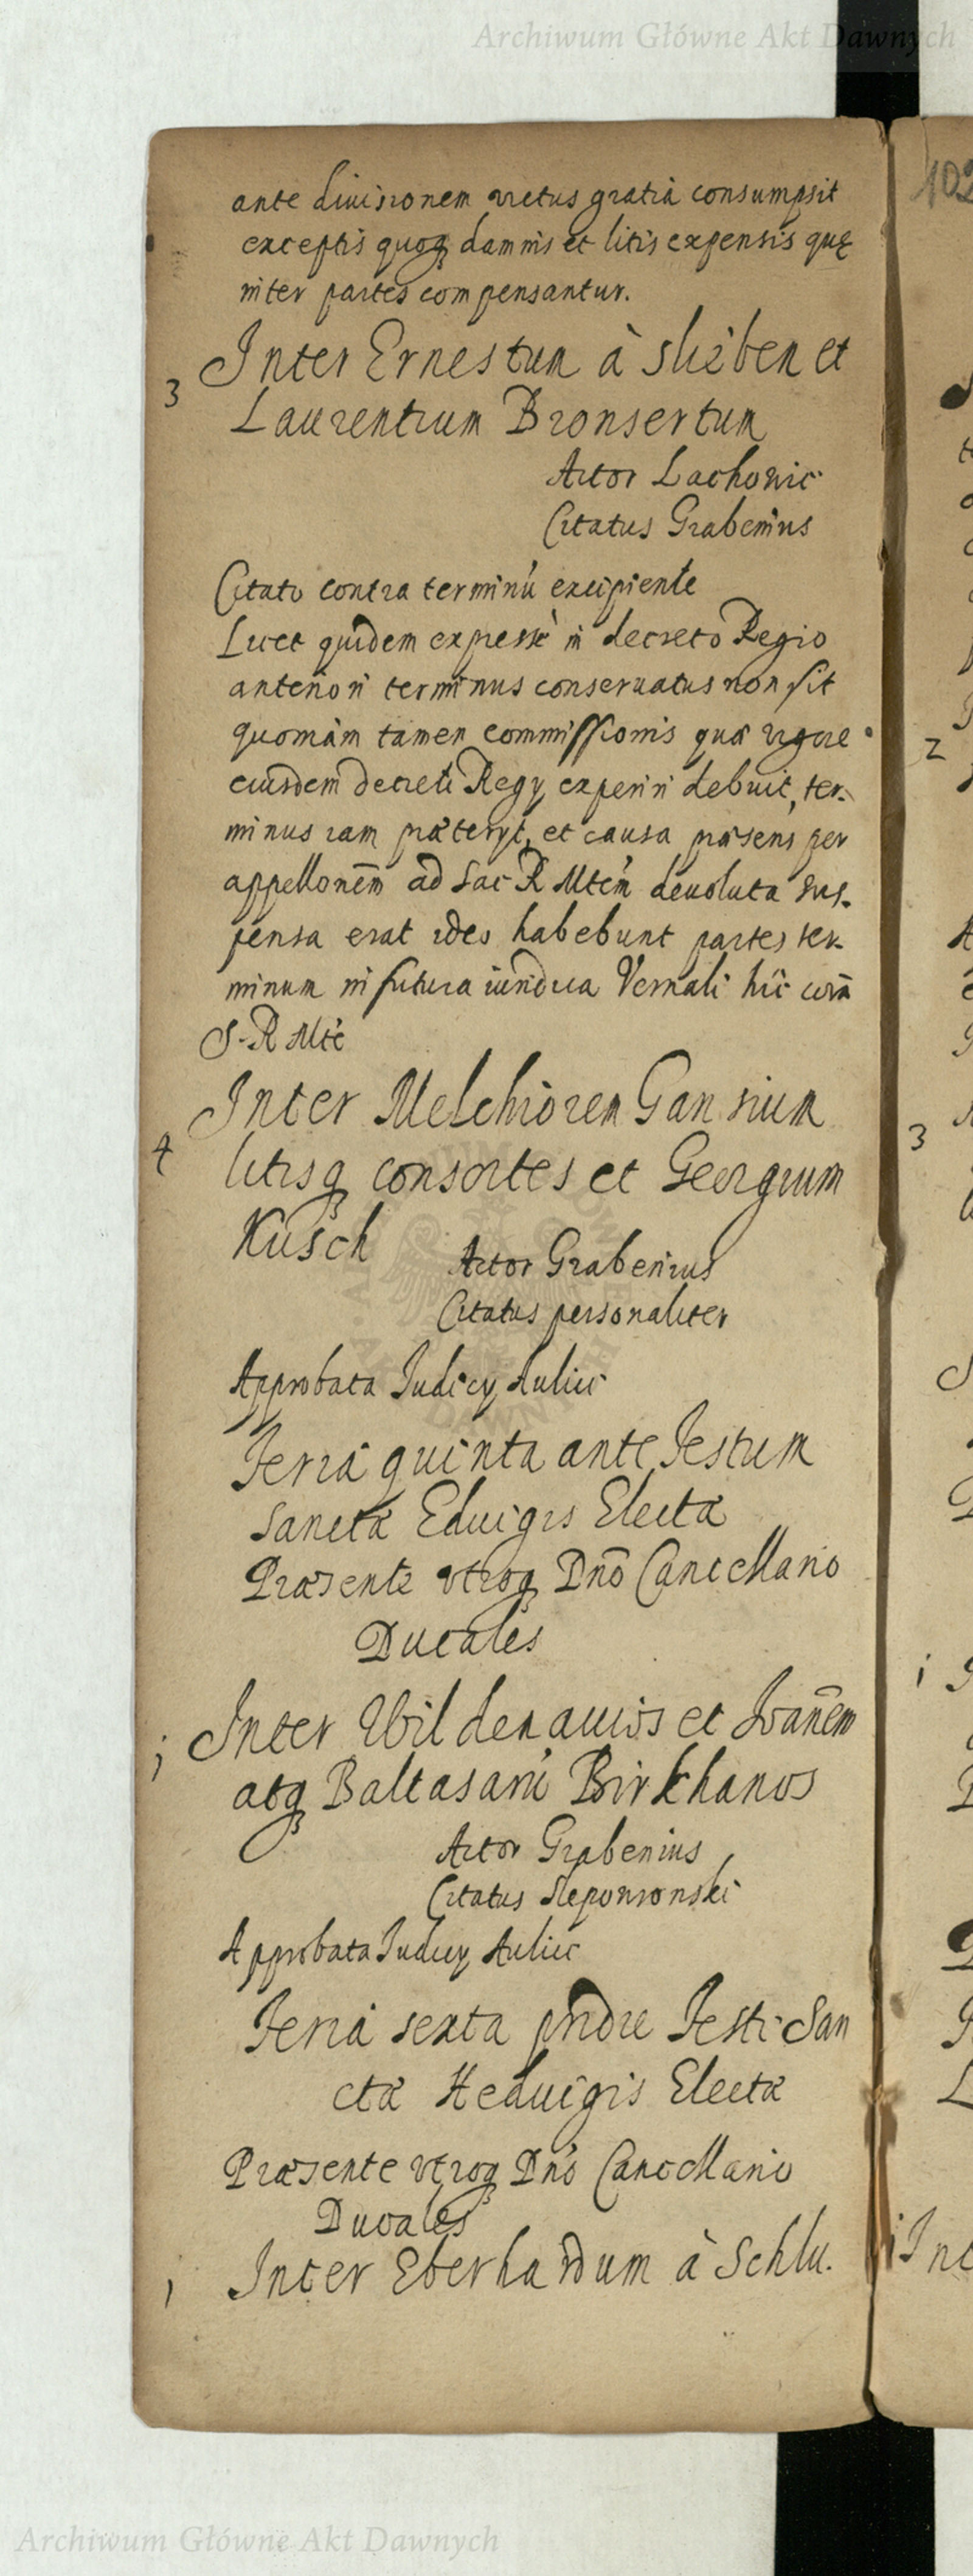 Archiwum Główne Akt Dawnych
102
ante diuisionem victus gratia consumpsit
exceptis quoq damnis et litis expensis quę
inter partes compensantur.
3 Inter Ernestum à Slieben et
Laurentium Bronsertum
Actor Lachowic
Citatus Grabenius
Citato contra terminũ excipiente
Licet quidem expressè in decreto Regio
anteriori terminus conseruatus non sit
quoniàm tamen commissionis quæ vigore
eiusdem decreti Regij experiri debuit, ter-
minus iam præterijt, et causa præsens per
appellonẽm ad Sac R Mtẽm deuoluta sus-
pensa erat ideo habebunt partes ter-
minum in futura iuridica Vernali hîc corã
S. R Mtẽ
4 Inter Melchiorem Gansium
litisq consortes et Georgium
Kusch
Actor Grabenius
Citatus personaliter
Approbata Judicij Aulici
Feria quinta ante Festum
Sanctæ Eduigis Electæ
Præsente vtroq Dnõ Cancellario
Ducales
j Inter Wildenauios et Joañem
atq Baltasarũ Birkhanos
Actor Grabenius
Citatus Sleponronski
Approbata Judicij Aulici
Feria sexta pridie Festi San
ctæ Heduigis Electæ
Præsente vtroq Dnõ Cancellario
Ducales
1 Inter Eberhardum à Schlu.
Archiwum Główne Akt Dawnych